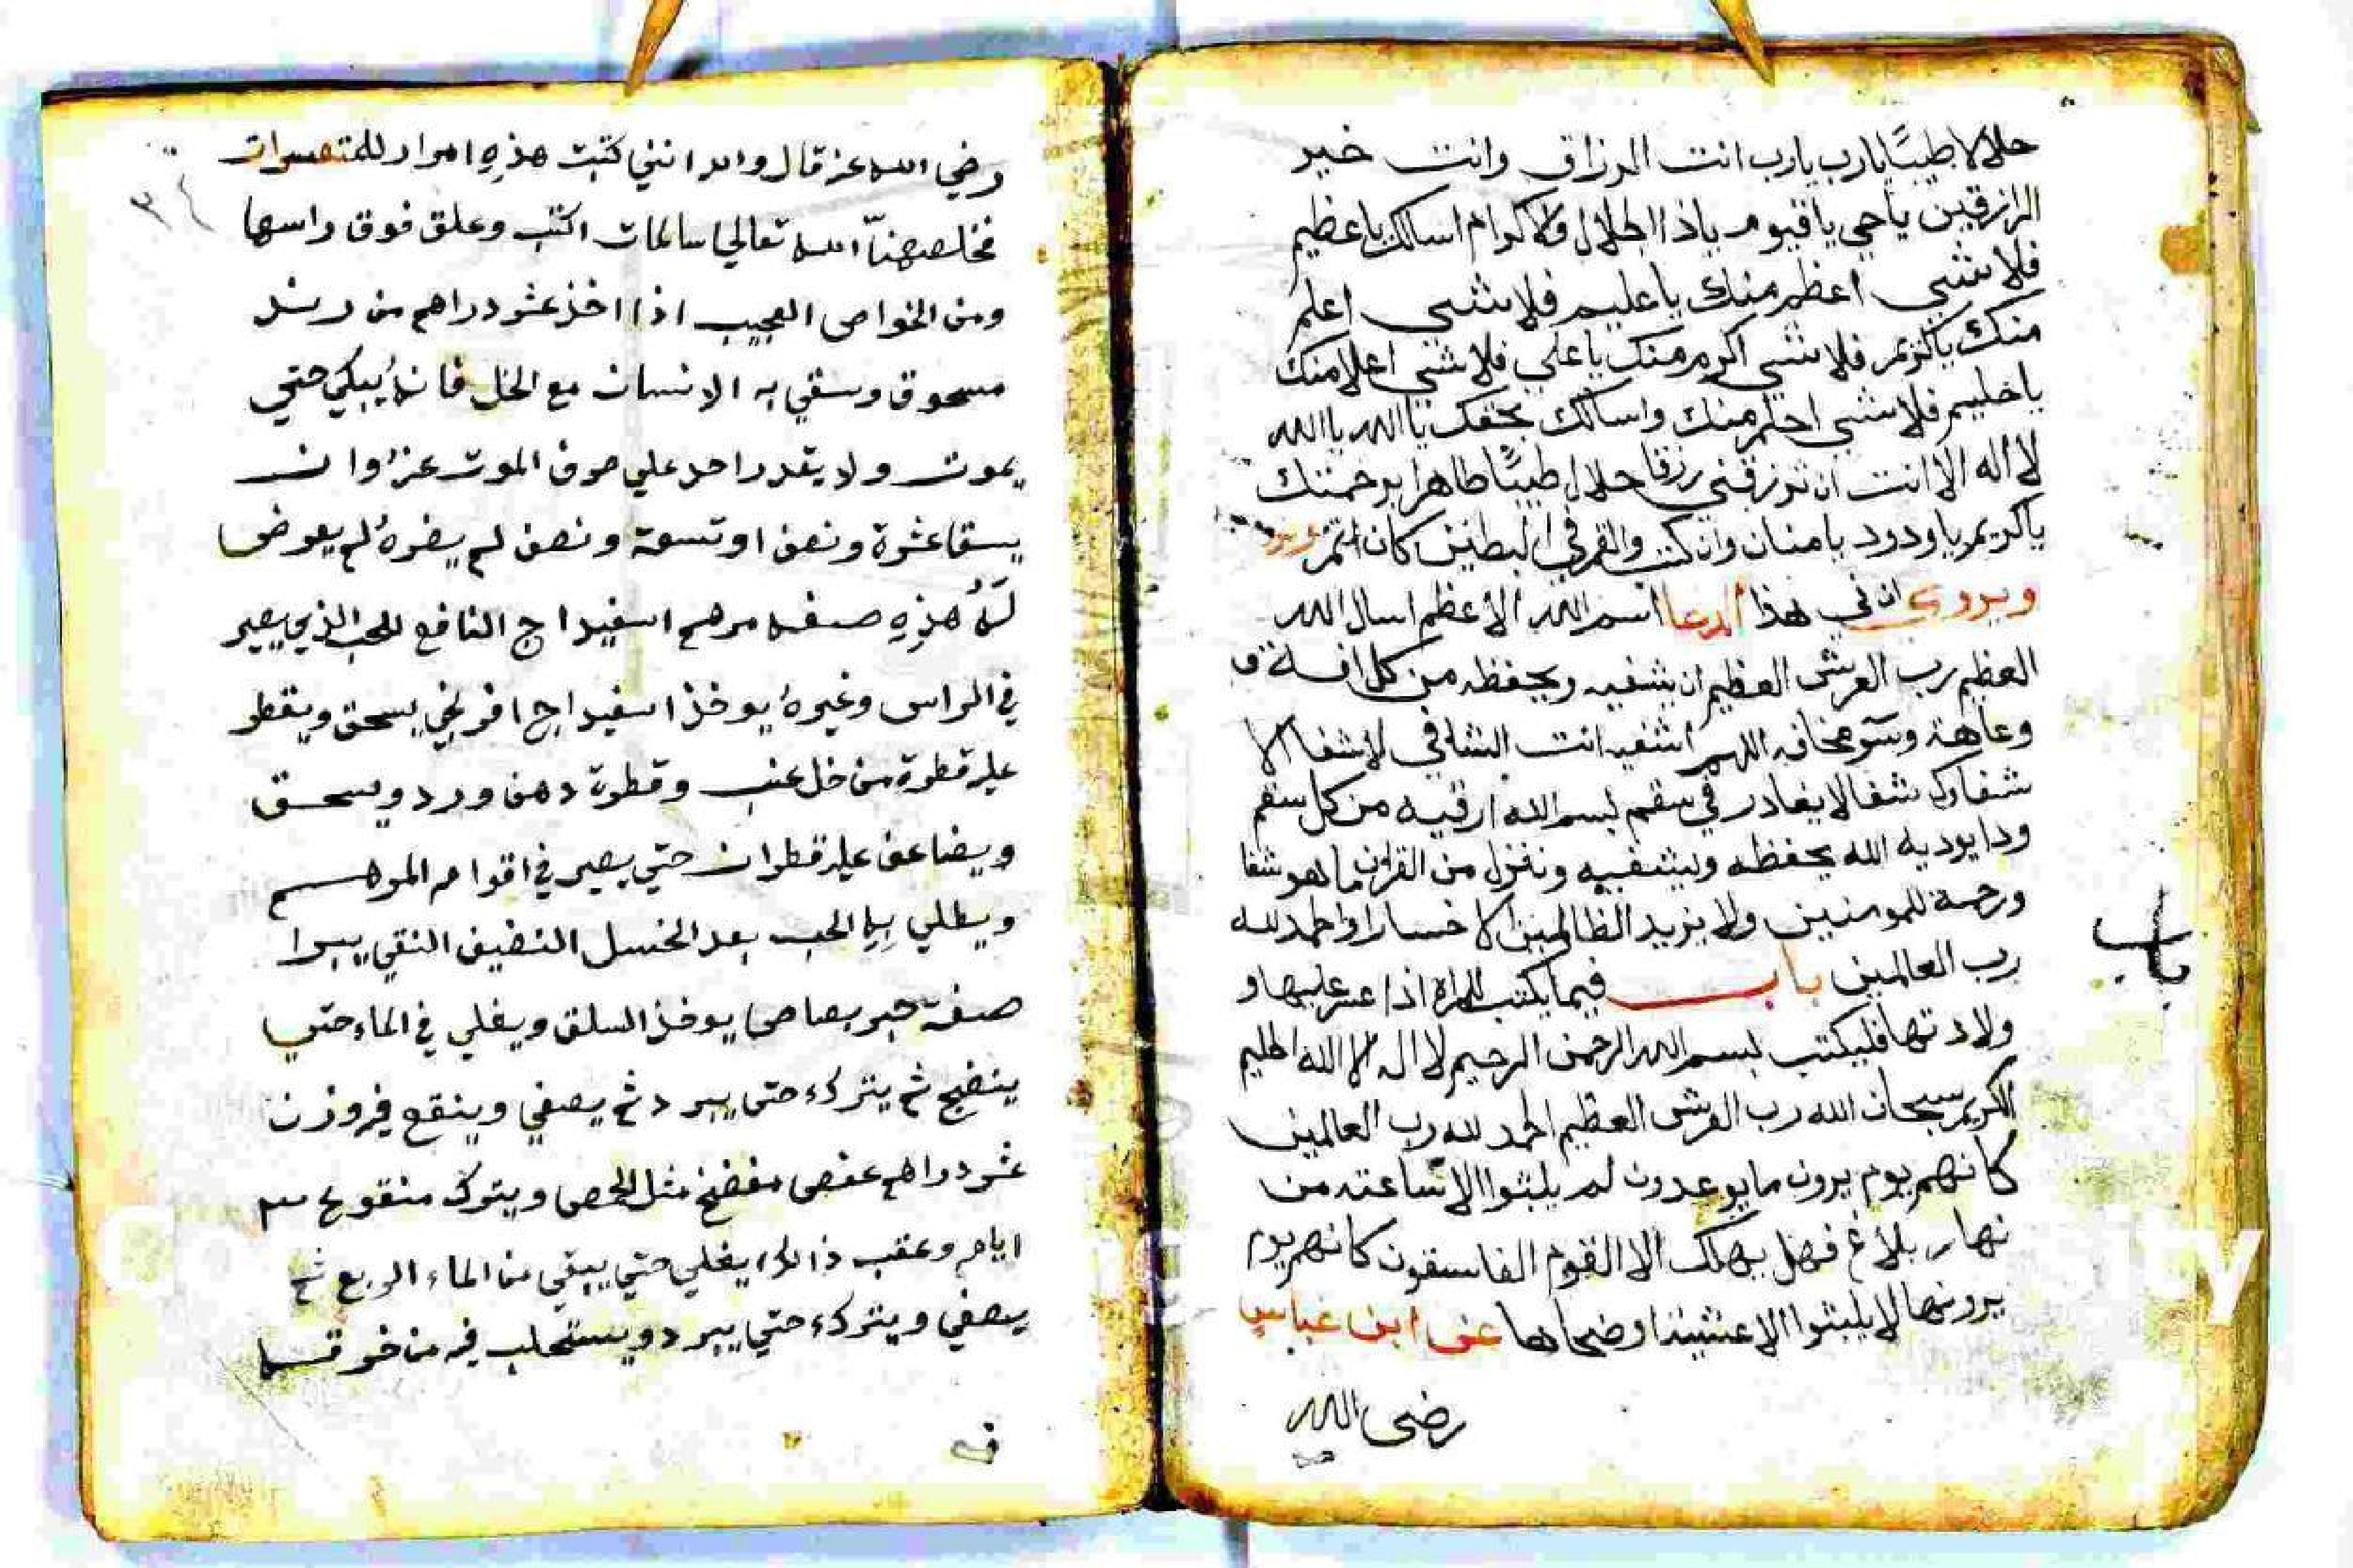 حلالا طيبًا يارب يارب انت الرزاق وانت خير
الرازقين ياحي ياقيوم ياذا الجلال والاكرام اسالك ياعظيم
فلا شي اعظم منك ياعليم فلا شي اعلم
منك ياكريم فلا شي اكرم منك ياعلي فلا شي اعلا منك
ياحليم فلا شي احلم منك واسالك بحقك ياالله ياالله
لا اله الا انت ان ترزقني رزقا حلال طيبًا طاهرا برحمتك
ياكريم ياودود يامنان وان كتب والقمر في البطين كان اتم
ويروي ان في هذا الدعا اسم الله الاعظم اسال الله
العظيم رب العرش العظيم ان يشفيه ويحفظه من كل افة و
وعاهة وسو مخافه اللهم اشفيه انت الشافي لا شفا الا
شفاوك شفا لا يغادر في سقم بسم الله ارقيه من كل سقم
ودا يوديه الله يحفظه ويشفيه وننزل من القران ما هو شفا
ورحمة للمومنين ولا يزيد الظالمين الا خسارا والحمد لله
رب العالمين باب فيما يكتب للمراة اذا عسر عليها و
باب
ولادتها فليكتب بسم الله الرحمن الرحيم لا اله الا الله الحليم
الكريم سبحان الله رب العرش العظيم الحمد لله رب العالمين
كانهم يوم يرون ما يوعدون لم يلبثوا الا ساعته من
نهار بلاغ فهل يهلك الا القوم الفاسقون كانهم يوم
يرونها لا يلبثوا الا عشيتا اوضحاها عن ابن عباس
رضي الله
رضي الله عنه قال والله انني كتبت هذه امرار للمتعسرات
فخلصهنّ الله تعالي سالمات اكتب وعلق فوق راسها
ومن الخواص العجيب اذا اخذ عشر دراهم من
مسحوق وسقي به الانسان مع الخل فانه يبكي حتي
يموت ولا يقدر احد علي صرف الموت عنه وان
يسقا عشرة ونصف او تسعة ونصف لم يضره لم يعرض
له هذه صفه مرهم اسفيداج النافع للحب الذي يصير
في الراس وغيره يوخذ اسفيداج افرنجي يسحق ويقطر
عليه قطرة من خل عنب وقطرة دهن ورد ويسحق
ويضاعف عليه قطران حتي يصير في اقوام المرهم
ويطلي به الحب بعد الغسل النضيف النقي يبرا
صفة حبر بصاص يوخذ السلق ويغلي في الماء حتي
ينضج ثم يتركه حتى يبرد ثم يصفي وينقع فيه وزن
عشر دراهم عفص مفضخ مثل الحمص ويترك منقوع
ايام وعقب ذالك يغلي حتي يبقي من الماء الربع ثم
يصفي ويتركه حتي يبرد ويستحلب فيه من خرقة